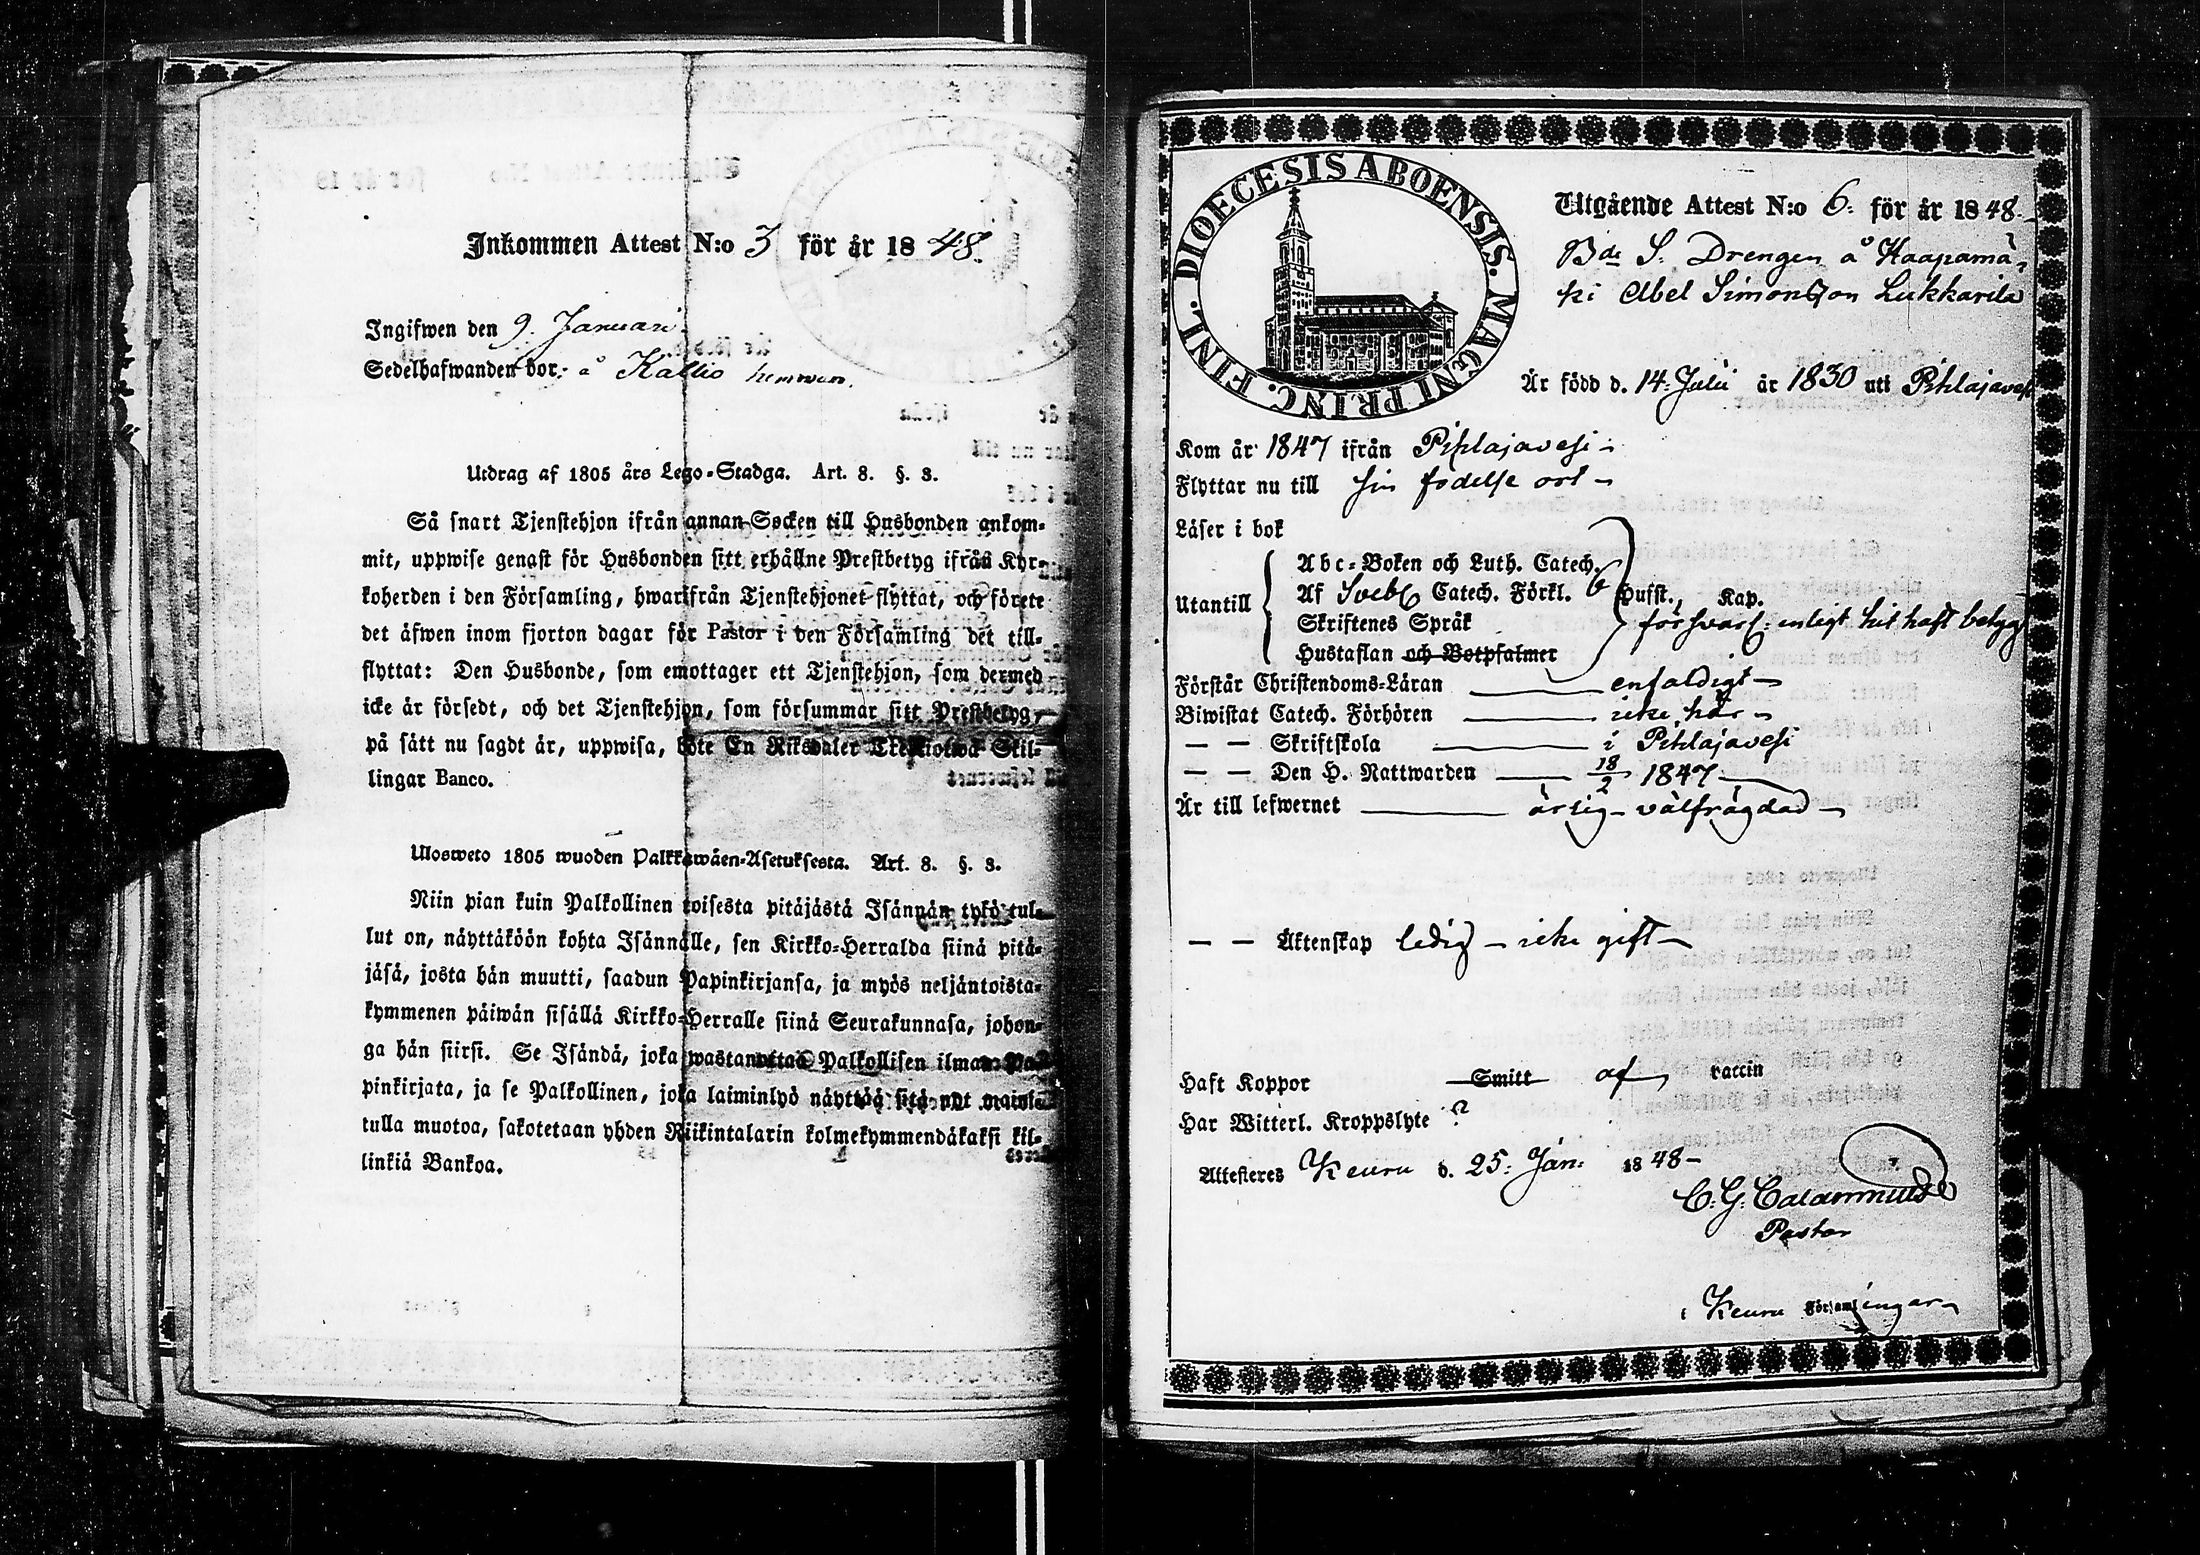 Inkommen Attest N:o 3 för år 1848.
Ingifwen den 9. Januari
Sedelhafwanden bor: å Kallio hemman.
Utdrag af 1805 års Lego-Stadga. Art. 8. §. 3.
Så snart Tjenstehjon ifrån annan Socken till Husbonden ankom-
mit, uppwise genast för Husbonden sitt erhållne Prestbetyg ifrån Kyr-
koherden i den Församling, hwarifrån Tjenstehjonet flyttat, och förete
det äfwen inom fjorton dagar för Pastor i den Församling det till-
flyttat: Den Husbonde, som emottager ett Tjenstehjon, som dermed
icke är försedt, och det Tjenstehjon, som försummar sitt Prestbetyg,
på sätt nu sagdt är, uppwisa, böte En Riksdaler Trettiotwå Skil-
lingar Banco.
Ulosweto 1805 wuoden Palkkawäen-Asetuksesta. Art. 8. §. 3.
Niin pian kuin Palkollinen toisesta pitäjästä Isännän tykö tul-
lut on, näyttäköön kohta Isännälle, sen Kirkko-Herralda siinä pitä-
jäsä, josta hän muutti, saadun Papinkirjansa, ja myös neljäntoista-
kymmenen päiwän sisällä Kirkko-Herralle siinä Seurakunnasa, johon-
ga hän siirsi. Se Isändä, joka wastanottaa Palkollisen ilman Pa-
pinkirjata, ja se Palkollinen, joka laiminlyö näyttää sitä nyt maini-
tulla muotoa, sakotetaan yhden Riikintalarin kolmekymmendäkaksi kil-
linkiä Bankoa.
DIOECESIS ABOENSIS. MAGNI PRINC. FINL.
Utgående Attest N:o 6: för år 1848.
Bde S: Drengen å Haapamä-
ki Abel Simonsson Lukkarila
Är född d. 14. Julii år 1830 uti Pihlajavesi
Kom år 1847 ifrån Pihlajavesi
Flyttar nu till sin fodelse ort
Läser i bok
Utantill
Abc-Boken och Luth. Catech.
Af Sveb. Catech. Förkl. 6 Hufst., Kap.
Skriftenes Språk försvarl: enligt hit haft betyg
Hustaflan och Botpsalmer
Förstår Christendoms-Läran enfaldigt
Biwistat Catech. Förhören icke här
— — Skriftskola i Pihlajavesi
— — Den H. Nattwarden 18/2 1847
Är till lefwernet ärlig välfrägdad
— — Äktenskap ledig – icke gift
Haft Koppor Smitt af vaccin
Har Witterl. Kroppslyte ?
Attesteres Keuru d. 25: Jan: 1848
C. G. Calamnius
Pastor
i Keuru Församlingar